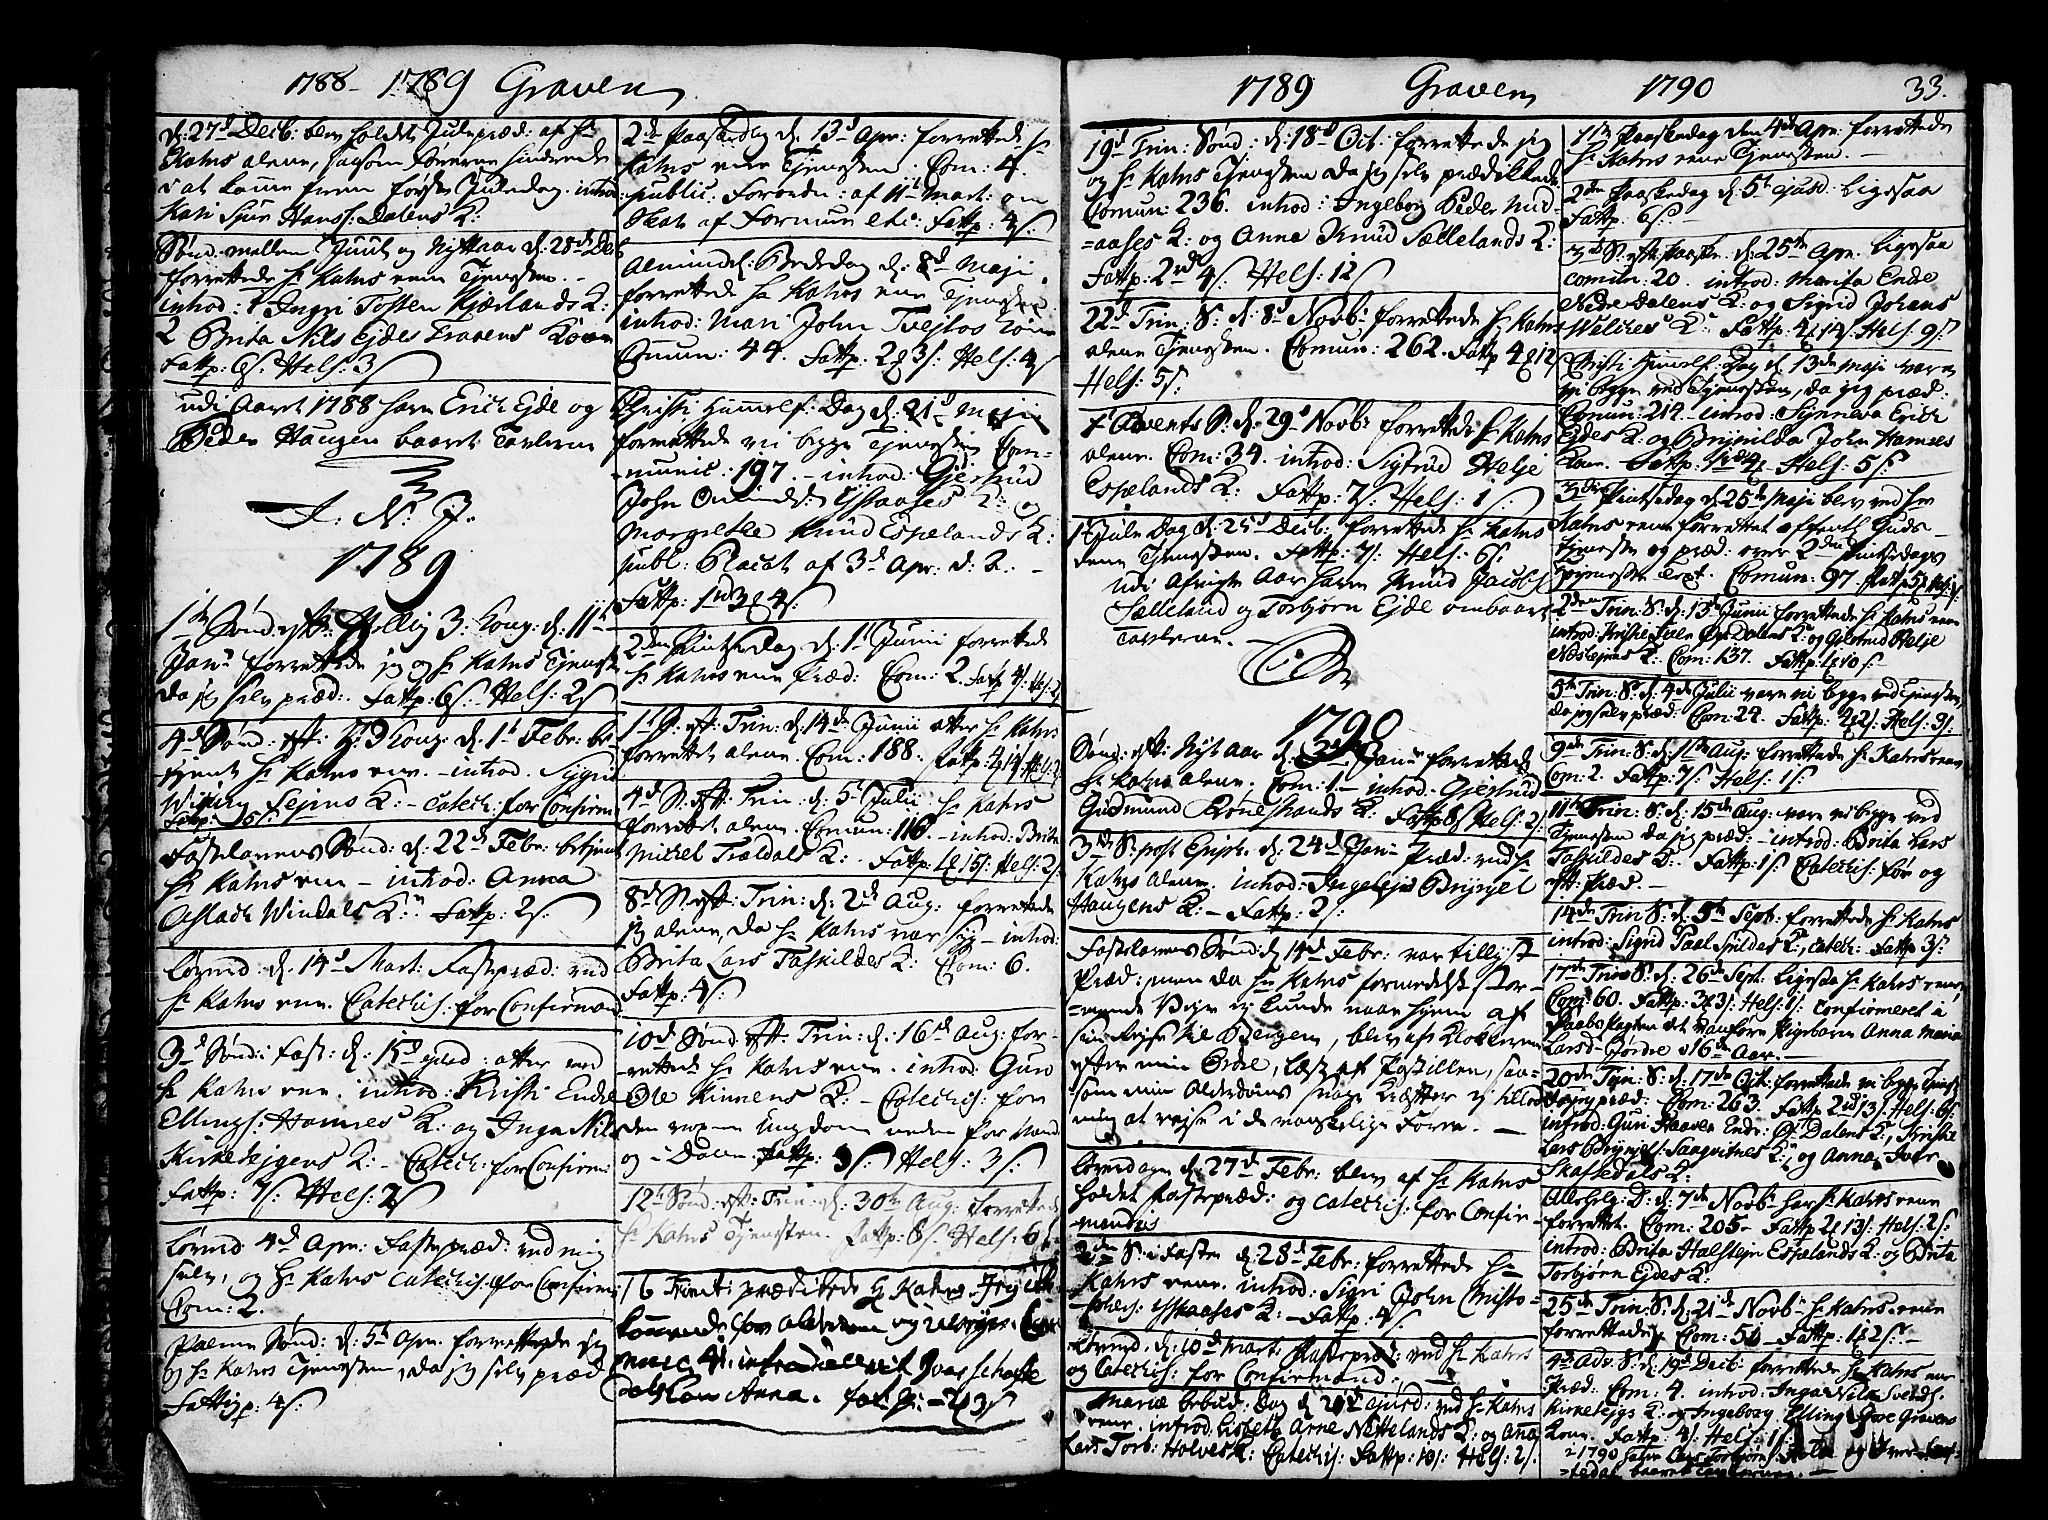 1788 - 1789 Graven
d: 27d Decb: blev holdet Julepræd: af Hr
Kahrs alene, saasom Føreene hindrede
i at komme frem første Juledag. introd
Kari Siur Hans: Dalens K:
Sønd. mellem Juul og Nyttaar d: 28de Dec
forrettede Hr Kahrs ene Tjenesten. -
introd: 1 Ingri Tosten Kjærlands K:
2 Brita Nils Ejdes Gravens Kone
Fattp: 6s. Hels: 3s
udi Aaret 1788 have Erich Ejde og
Peder Haugen baaret Tavlerne
J. N. J.
1789
1te Sønd. eft: Hellig 3: Kong: d: 11te
Janu forrettede jeg og Hr Kahrs Tjenest
da jeg selv præd: Fattp: 6s Hels: 2s
4d Sønd: eft: H. 3 Kong: d: 1t Febr: be
tjent Hr Kahrs ene. - introd. Sygni
Wiking Sejms K: - Catech: for Confirm
Fattp: 5s:
Fastelavens Sønd: d: 22d Febr: betjent
Hr Kahrs ene - introd: Anna
Aslach Windals K: Fattp: 2s:
Løverd. d: 14d Mart: Fastepræd: ved
Hr Kahrs ene. Catechis: for Confirmand
3d Sønd: i Fast: d: 15d ejusd: atter ved
Hr Kahrs ene. introd: Kristi Endre
Ellings: Hamres K: og Inga Nils
Kirkeejgens K: - Catech: for Confirm:
Fattp: 7s: Hels: 2s
Løverd 4d Apr: Fastepræd: ved mig
selv, og Hr Kahrs catechis: for Confirm
Com: 2.
Palme Sønd: d: 5t Apr: forrettede jeg
og Hr Kahrs Tjenesten, da jeg selv præd
Fattig: 4s:
2de Paaskedag d: 13d Apr: forrettede Hr
Kahrs ene Tjenesten. Com: 4.
public: Forordn: af 11t Mart: om
Skat af Formue etc: Fattp: 4s
Almindel: Bededag d: 8d Maji
forrettede Hr Kahrs ene Tjenesten
introd: Mari John Tvejtos Kone
Comun: 44. Fattp: 2 3s: Hels: 4s
Christi Himmelf: Dag d: 21d Maji
forrettede vi begge Tjenesten Com-
munic: 197. - introd: Gjertrud
John Omunds: Ystaases K: og
Margrethe Knud Espelands K:
publ: Placat af 3d Apr: d: A: -
Fattp: 1rd 3 4s:
2den Pintsedag d: 1t Junii forrettede
Hr Kahrs ene Præd: Com: 2. Fattp 4s: Hels: 2s
1t S: eft: Trin: d: 14de Junii atter Hr Kahrs
forrettet alene. Com: 188. Fattp: 4 14s Hels: 2
4d S: eft: Trin: d: 5t Julii Hr Kahrs
forrettet alene. Comun: 116. - introd: Brita
Michel Trældals K: Fattp: 1 15s: Hels: 2s
8d S: eft: Trin: d: 2d Aug: forrettede
jeg alene, da Hr Kahrs var syg - introd:
Brita Lars Taskildes K: Com: 6.
Fattp: 4s:
10d Sønd: eft: Trin: d: 16d Aug: for-
rettede Hr Kahrs ene. introd: Guro
Ole Kinnens K: - Catechis: for
den voxne Ungdom neden for Vand
og i Dalen. Fattp: 3s: Hels: 3s:
12te Sønd: eft: Trin: d: 30te Aug: forrettede
Hr Kahrs Tjenesten. Fattp: 8s: Hels: 6s
16 Trinit: prædikede H Kahrs. Jeg ikke
kommende for alderdom og
munic 41. introducerit Ivar Schaffte
dals Kone Anna. Fat: P: - 2 3s
1789 Graven 1790 33.
19d Trin: Sønd: d: 18d Oct: forrettede jeg
og Hr Kahrs Tjenesten da jeg selv prædikede
Comun: 236. introd: Ingeborg Peder Nid-
=aases K: og Anna Knud Sællelands K:
Fattp: 2rd 4s: Hels: 12s
22d Trin: S: d: 8d Novb: forrettede Hr Kahrs
alene Tjenesten. Comun: 262. Fattp 4 12
Hels: 5s:
1t Advents S: d: 29d Novb: forrettede Hr Kahrs
alene. Com: 34. introd: Sigtrud Helje
Espelands K: Fattp: 7s: Hels: 1s:
1 Jule Dag d: 25d Decb: forrettede Hr Kahrs
ene Tjenesten. Fattp: 7s: Hels: 6s:
udi afvigte Aar have Knud Jacobs:
Sælleland og Torbjørn Ejde ombaaret
Tavlerne.
1790
Sønd: eft: Nyt aar d: 3die Janu forrettede
Hr Kahrs alene. Com: 1. - introd: Gjertrud
Gudmund Rønestrands K: Fattp 8s Hels: 2s:
3d S: post Epiph: d: 24d Janu Præd: ved Hr
Kahrs alene. introd: Ingelejv Brynjel
Haugens K: - Fattp: 2s:
Fastelavens Sønd: d: 14d Febr: var tillyst
Præd: men da Hr Kahrs formedelst stor-
=mende Vejr ej kunde naae hjem af
sin rejse til Bergen, blev af Klokkeren
efter min Ordre, læst af Postillen, saa-
som min Alderdoms svage Kræfter ej tillod
mig at rejse i de vanskelige Føre. -
Løverdagen d: 27d Febr: blev af Hr Kahrs
holdet Fastepræd: og catechis: for Confir-
mandis
2den S: i Fasten d: 28d Febr: forrettede Hr
Kahrs ene. introd: Sigri John Christo-
=phers: Ystaases K: - Fattp: 4s:
Løverd: d: 10d Mart: Fastepræd: ved Hr Kahrs
og Catechis: for Confirmand:
Mariæ Bebud: Dag d: 25d ejusd: ved Hr Kahrs
ene. introd: Lisbeta Arne Nettelands K: og Ana
Lars Torb: Holvens K: Catechis: Fattp: 10s: Hels: 2s:
1te Paaskedag den 4de Apr: forrettede
Hr Kahrs ene Tjenesten. -
2den Paaskedag d: 5t ejusd: Ligesaa
Fattp: 6s: -
3d S: eft: Paaske d: 25de Apr: ligesaa
comun: 20. introd: Marita Endre
Nedre Dalens K: og Sigrid Johans
Wælches K: Fattp: 4 14s: Hels: 9s:
Christi Himelf: Dag d. 13de Maji vare
vi begge ved Tjenesten, da jeg præd:
Comun: 214. - introd: Synneva Erich
Ejdes K: og Brynilda John Hamres
Kone. - Fattp: 1rd 4 Hels: 5s:
3die Pintsedag d: 25de Maji blev ved Hr
Kahrs ene forrettet offentl: Guds-
Tjeneste og præd: over 2den Pintsedags
Tjeneste Text. Comun: 97. Fattp 5 Hels: s
2den Trin: S: d: 13de Junii forrettede Hr Kahrs ene
introd: Kristi Iver Ø: Dalens K: og Gjertrud Helje
Nesheims K: Com: 137. Fattp: 1 10s:
5te Trin: S: d: 4de Julii vare vi begge ved Tjenesten,
da jeg selv præd: Com: 24. Fattp: 2 2s: Hels: 9s:
9de Trin: S: d: 1te Aug: forrettede Hr Kahrs ene
Com: 2. Fattp: 7s: Hels: 1s:
11te Trin: S: d: 15de Aug: vare vi begge ved
Tjenesten da jeg præd: - introd: Brita Lars
Taskildes K: Fattp: 1s: Catechis: før og
eft: Præd. -
14de Trin S: d: 5te Septb: forrettede Hr Kahrs
introd: Sigrid Paal Spildes K:, catech: Fattp: 3s:
17de Trin S: d: 26de Sept: ligesaa Hr Kahrs ene
Com: 60. Fattp: 3 3s: Hels: 1s: confirmeret i
Daabs Pagten det vanføre Pigebarn Anna Maria
Larsd: Jørdre 16de Aar. -
20de Trin: S: d: 17de Oct: forrettede vi begge Tjenest
da jeg præd: Com: 263. Fattp: 2rd 13s: Hels: 6s:
introd: Guri Haaver Endr: Øf: Dalens K:, Kristi
Lars Brynjels: Saaqvitnes K:, og Anna Iver
Skaftedals K:
Allehelg: D: d: 7de Novb: har Hr Kahrs ene
forrettet. Com: 205 - Fattp 2 13s: Hels: 2s:
introd: Brita Halstejn Espelands K: og Brita
Torbjørn Ejdes K:
25de Trin: S: d: 21de Novb: Hr Kahrs ene
forrettede Com: 51 - Fattp: 1 2s: -
4de Adv: S: d: 19d Decb: forrettede Hr Kahrs ene
Præd: Com: 4. introd: Inga Nils Svends:
Kirkeejgs K: og Ingeborg Elling Gravens
Kone. Fattp: 4s: Hels: 1s
i 1790 have Lars Torbjørns: og Iver
=tedal baaret Tavlerne. -